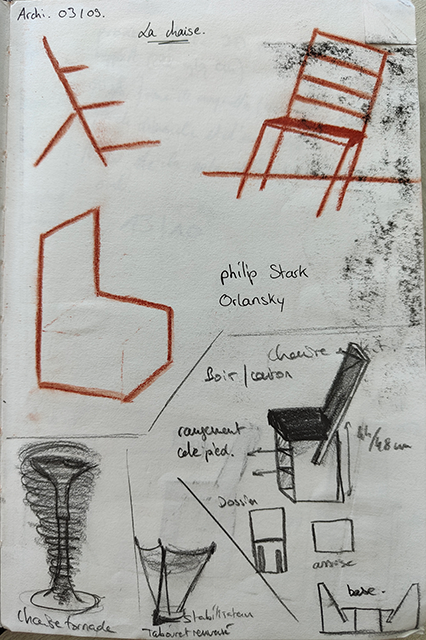 Archi. 03/09.
La chaise.
philip Stark
Orlansky
Boir/carton
rangement
cale pied.
44/48 cm
Dossier
assise
base.
Stabilisateur
Tabouret renversé
chaise tornade